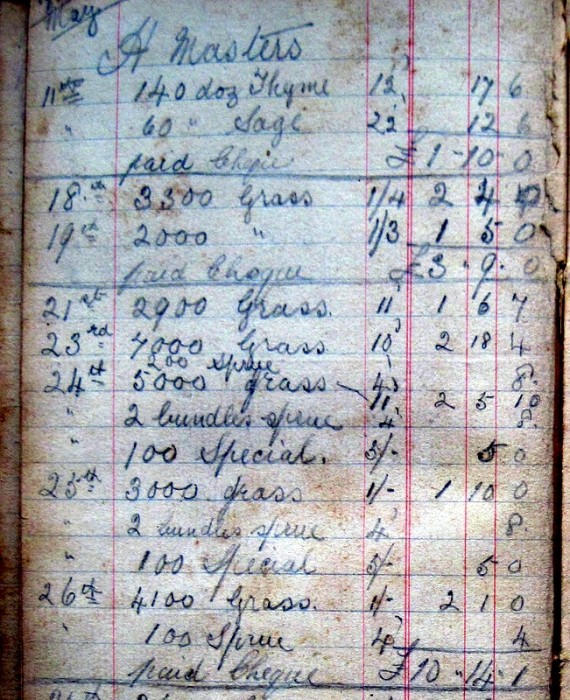 May
A Masters
11th 140 doz Thyme 1½ 17 6
" 60 " Sage 2½ 12 6
paid Cheque £1-10-0
18th 3300 Grass 1/4 2 4 0
19th 2000 " 1/3 1 5 0
paid Cheque £3 " 9 " 0
21st 2900 Grass. 11' 1 6 7
23rd 7000 Grass 10' 2 18 4
200 Sprue 4' 8.
24th 5000 grass 11' 2 5 10
" 2 bundles sprue 4' 8.
" 100 Special. 5/- 5 0
25th 3000 grass 1/- 1 10 0
" 2 bundles sprue 4' 8.
" 100 Special 5/- 5 0
26th 4100 Grass. 1/- 2 1 0
" 100 Sprue 4' 4
paid Cheque £10 " 14 " 1